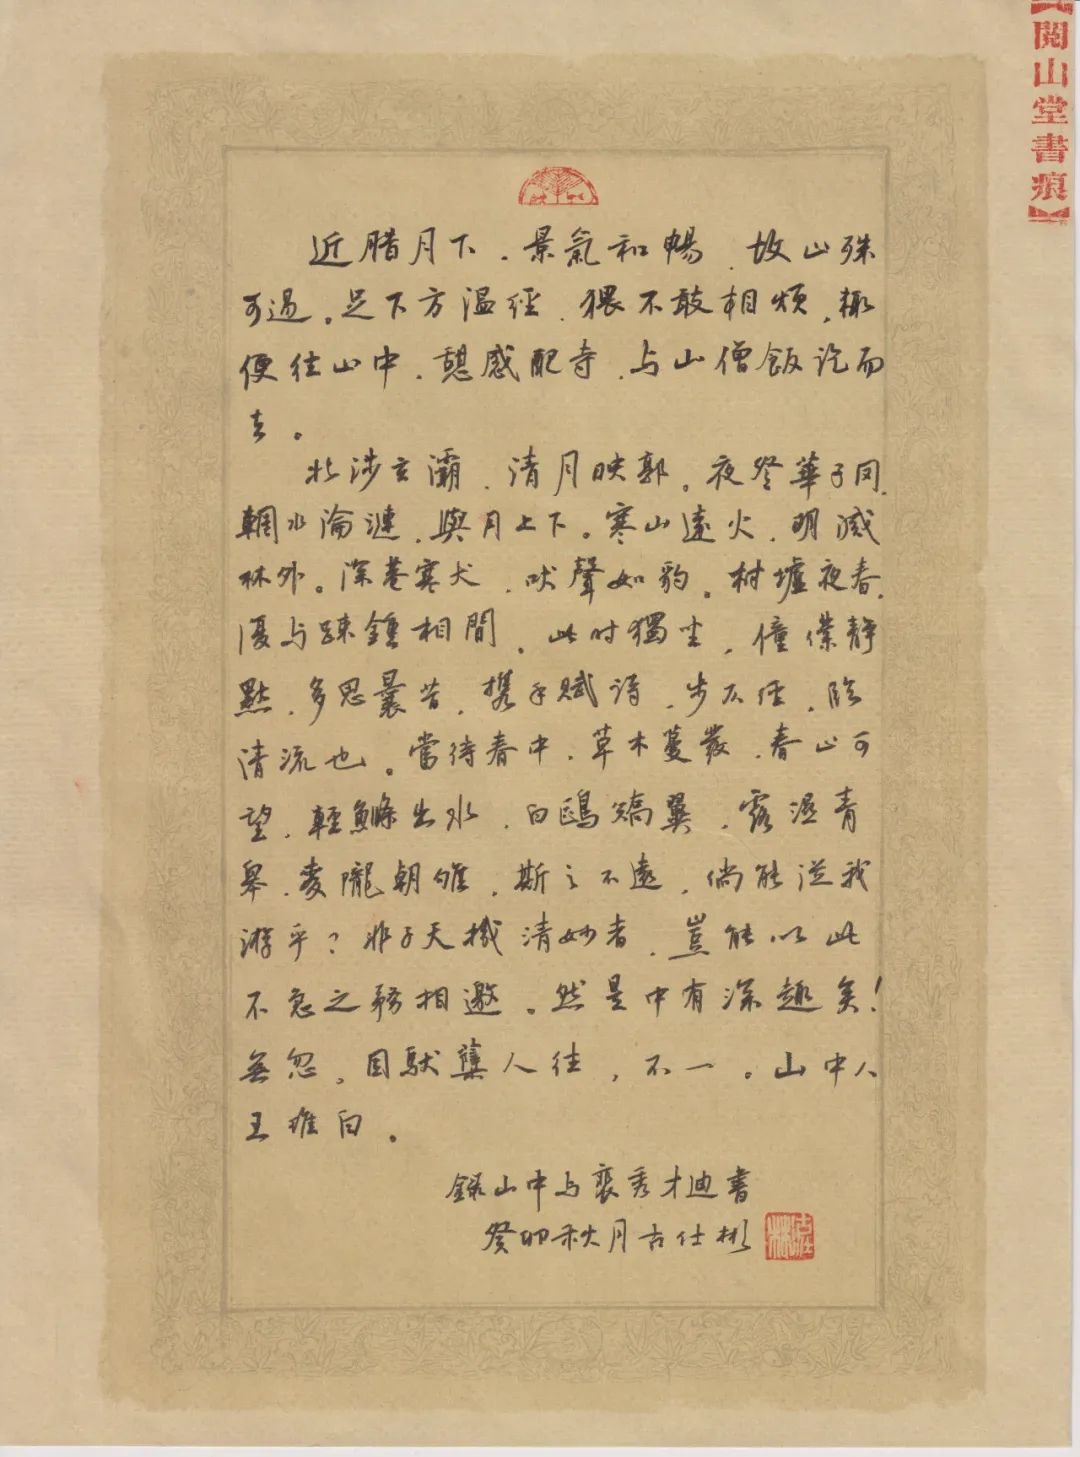 【閱山堂書痕】
近腊月下，景氣和暢，故山殊
可過。足下方温經，猥不敢相煩，輒
便往山中，憩感配寺，与山僧飯訖而
去。
北涉玄灞，清月映郭。夜登華子冈，
輞水淪漣，與月上下。寒山遠火，明滅
林外。深巷寒犬，吠聲如豹。村墟夜舂，
復与疎鍾相間。此时獨坐，僮僕静
默，多思曩昔，携手赋诗，步仄径，臨
清流也。當待春中，草木蔓發，春山可
望，輕鰷出水，白鷗矯翼，露濕青
皋，麦隴朝雊，斯之不遠，倘能從我
游乎？非子天機清妙者，豈能以此
不急之務相邀。然是中有深趣矣！
無忽。因馱蘗人往，不一。山中人
王维白。
錄山中与裴秀才迪書
癸卯秋月古仕彬